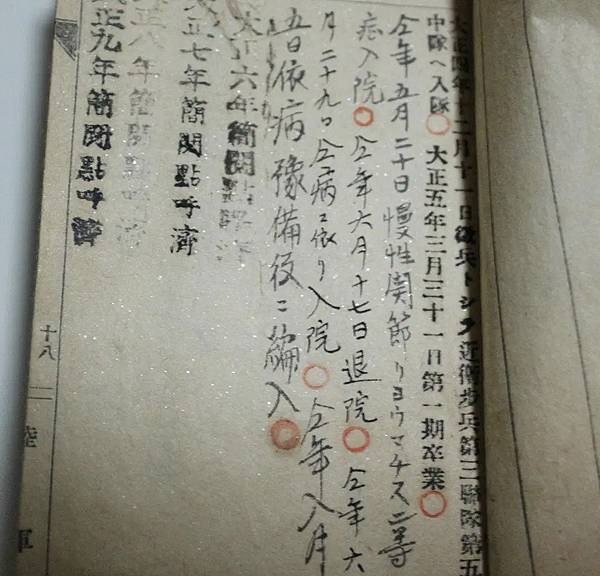 大正四年十二月十一日徴兵トシテ近衛歩兵第三聯隊第五
中隊ヘ入隊○大正五年三月三十一日第一期卒業○
仝年五月二十日慢性関節リヨウマチス二等
症入院○仝年六月十七日退院○仝年六
月二十九日仝病ニ依リ入院○仝年八月
五日依病豫備役ニ編入○
大正六年簡閲點呼濟
大正七年簡閲點呼濟
大正八年簡閲點呼濟
大正九年簡閲點呼濟
十八
陸軍